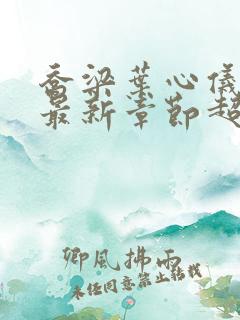 乔梁叶心仪
最新章节超
卿风拂雨
未经同意禁止转载